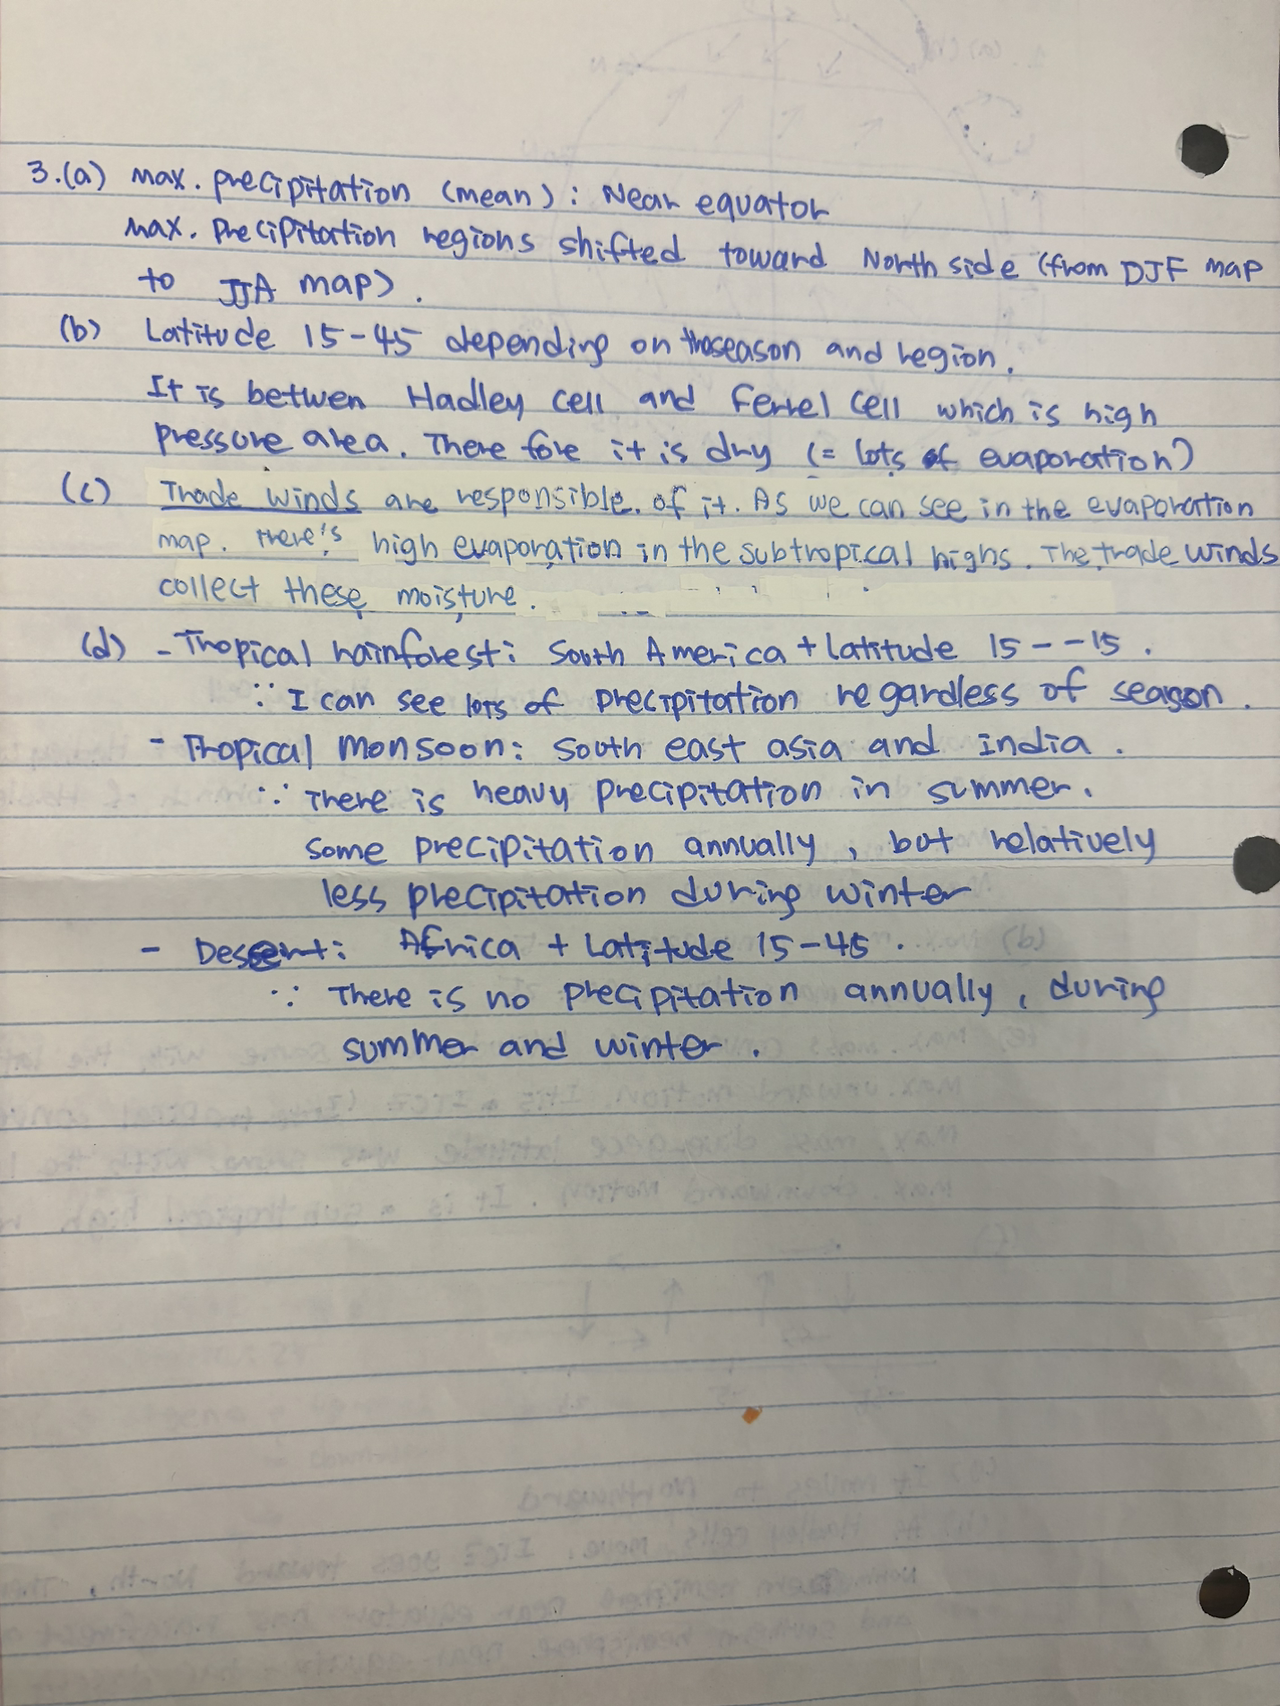 3.(a) max. precipitation (mean) : Near equator
max. precipitation regions shifted toward North side (from DJF map
to JJA map).
(b) Latitude 15-45 depending on the season and region.
It is betwen Hadley cell and Ferrel cell which is high
pressure area. There fore it is dry (= lots of evaporation)
(c) Trade winds are responsible of it. As we can see in the evaporation
map. there's high evaporation in the subtropical highs. The trade winds
collect these moisture.
(d) - Tropical rainforest: South America + Latitude 15 - -15.
∵ I can see lots of precipitation regardless of season.
- Tropical monsoon: South east asia and India.
∵ There is heavy precipitation in summer.
some precipitation annually, but relatively
less precipitation during winter
- Desert: Africa + Latitude 15-45.
∵ There is no precipitation annually, during
summer and winter.